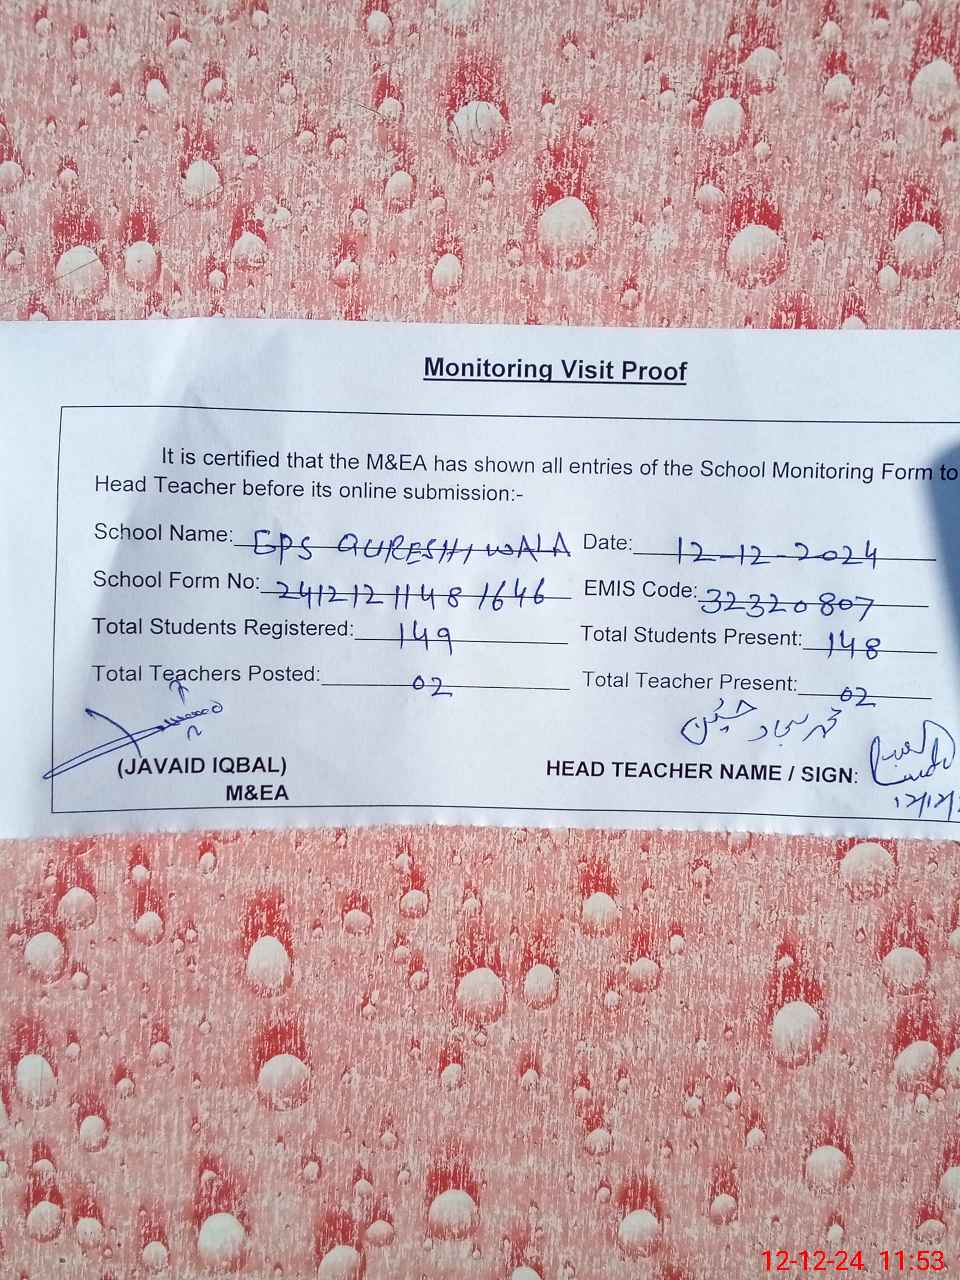 Monitoring Visit Proof
It is certified that the M&EA has shown all entries of the School Monitoring Form to
Head Teacher before its online submission:-
School Name: GPS QURESHI WALA Date: 12-12-2024
School Form No: 2412121148 1646 EMIS Code: 32320807
Total Students Registered: 149 Total Students Present: 148
Total Teachers Posted: 02 Total Teacher Present: 02
محمد سجاد حسین
(JAVAID IQBAL) HEAD TEACHER NAME / SIGN:
M&EA 12/12/
12-12-24 11:53